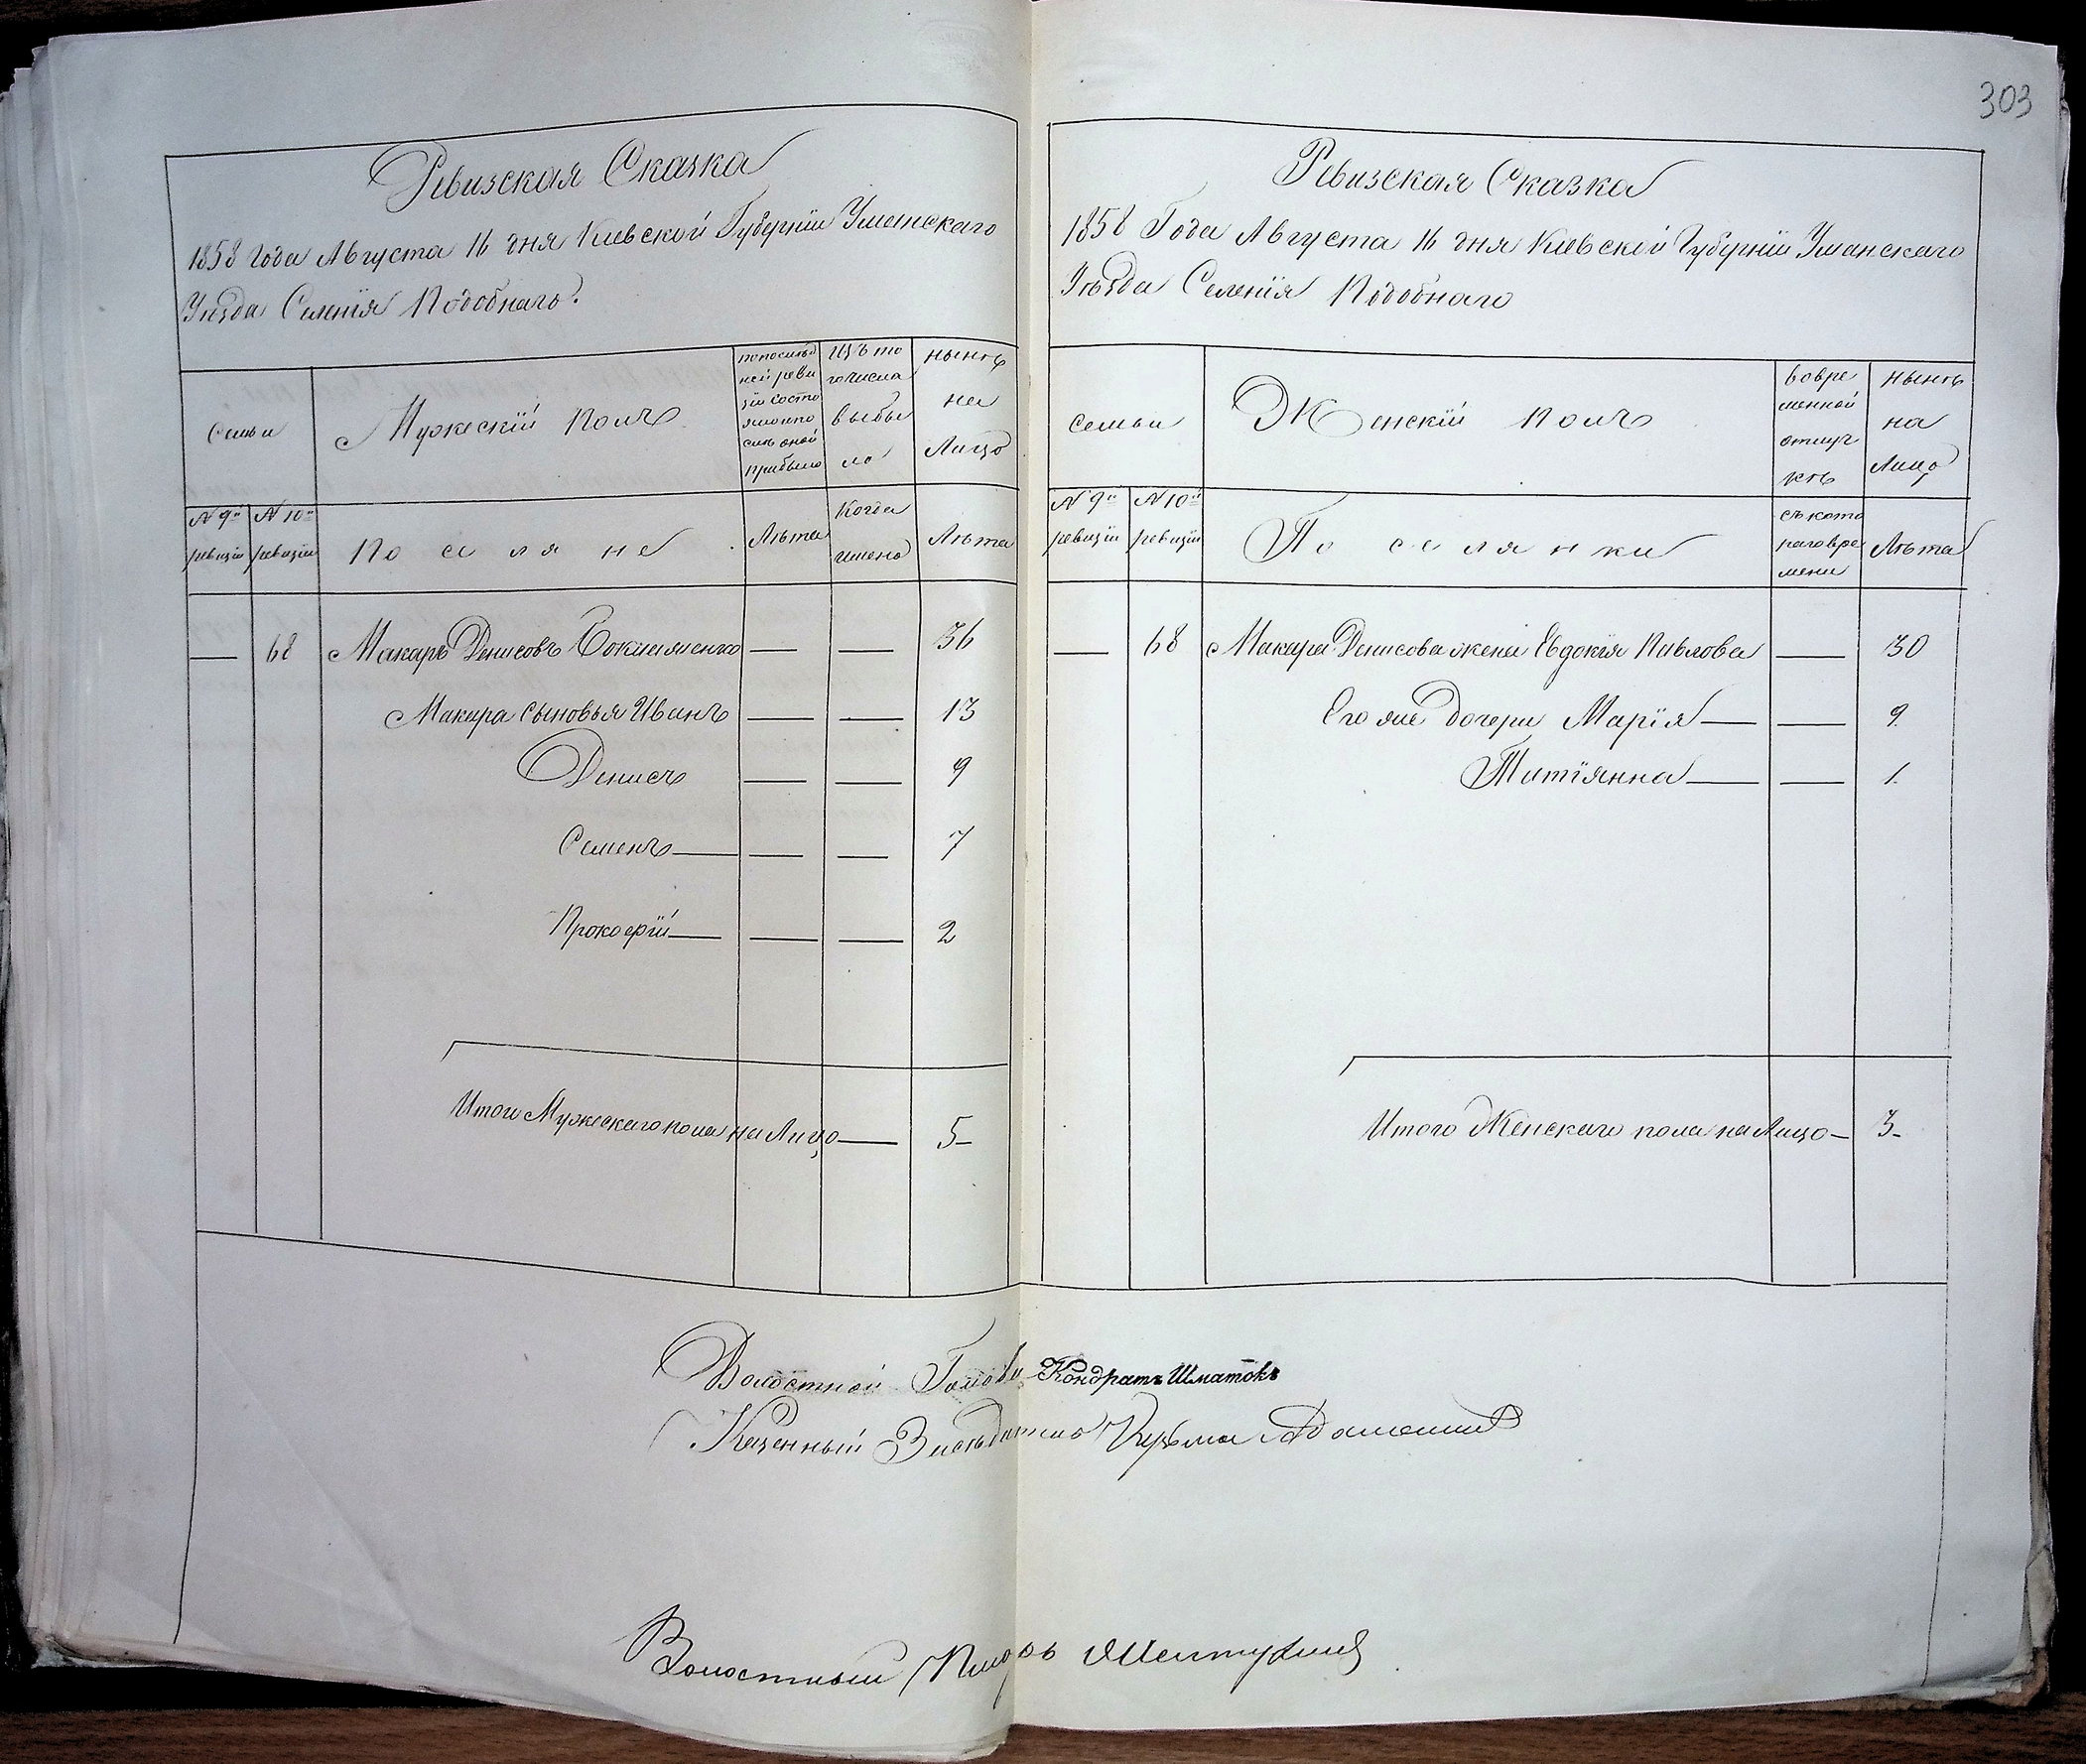 303
Ревизская Сказка
1858 года Августа 16 дня Киевской Губернiи Уманскаго
Уѣзда Селенiя Подобнаго.
Семьи
Мужескiй полъ
попослѣд
ней реви
зiи состо
яло и по
слѣ оной
прибыло
Изъ то
го числа
выбы
ло
нынѣ
на
Лицо
№ 9й
ревизiи
№ 10й
ревизiи
Поселяне
Лѣта
Когда
именно
Лѣта
— 68 Макаръ Денисовъ — — 36
Макара сыновья Иванъ — — 13
Денисъ — — 9
Семенъ — — — 7
Прокофiй — — — 2
Итого Мужескаго пола на Лицо — 5-
Ревизская Сказка
1858 Года Августа 16 дня Киевской Губернiи Уманскаго
Уѣзда Селенiя Подобнаго
семьи
Женскiй полъ
вовре
менной
отлуч
кѣ
нынѣ
на
Лицо
№ 9й
ревизiи
№ 10й
ревизiи
Поселянки
съ кото
раго вре
мени
Лѣта
— 68 Макара Денисова жена Евдокiя Павлова — 30
Его же дочери Марiя — — 9
Татiянна — — 1.
Итого Женскаго пола на Лицо — 3-
Волостной Голова Кондратъ Шматокъ
Казенный Засѣдатель Кузьма
Волостный Писарь